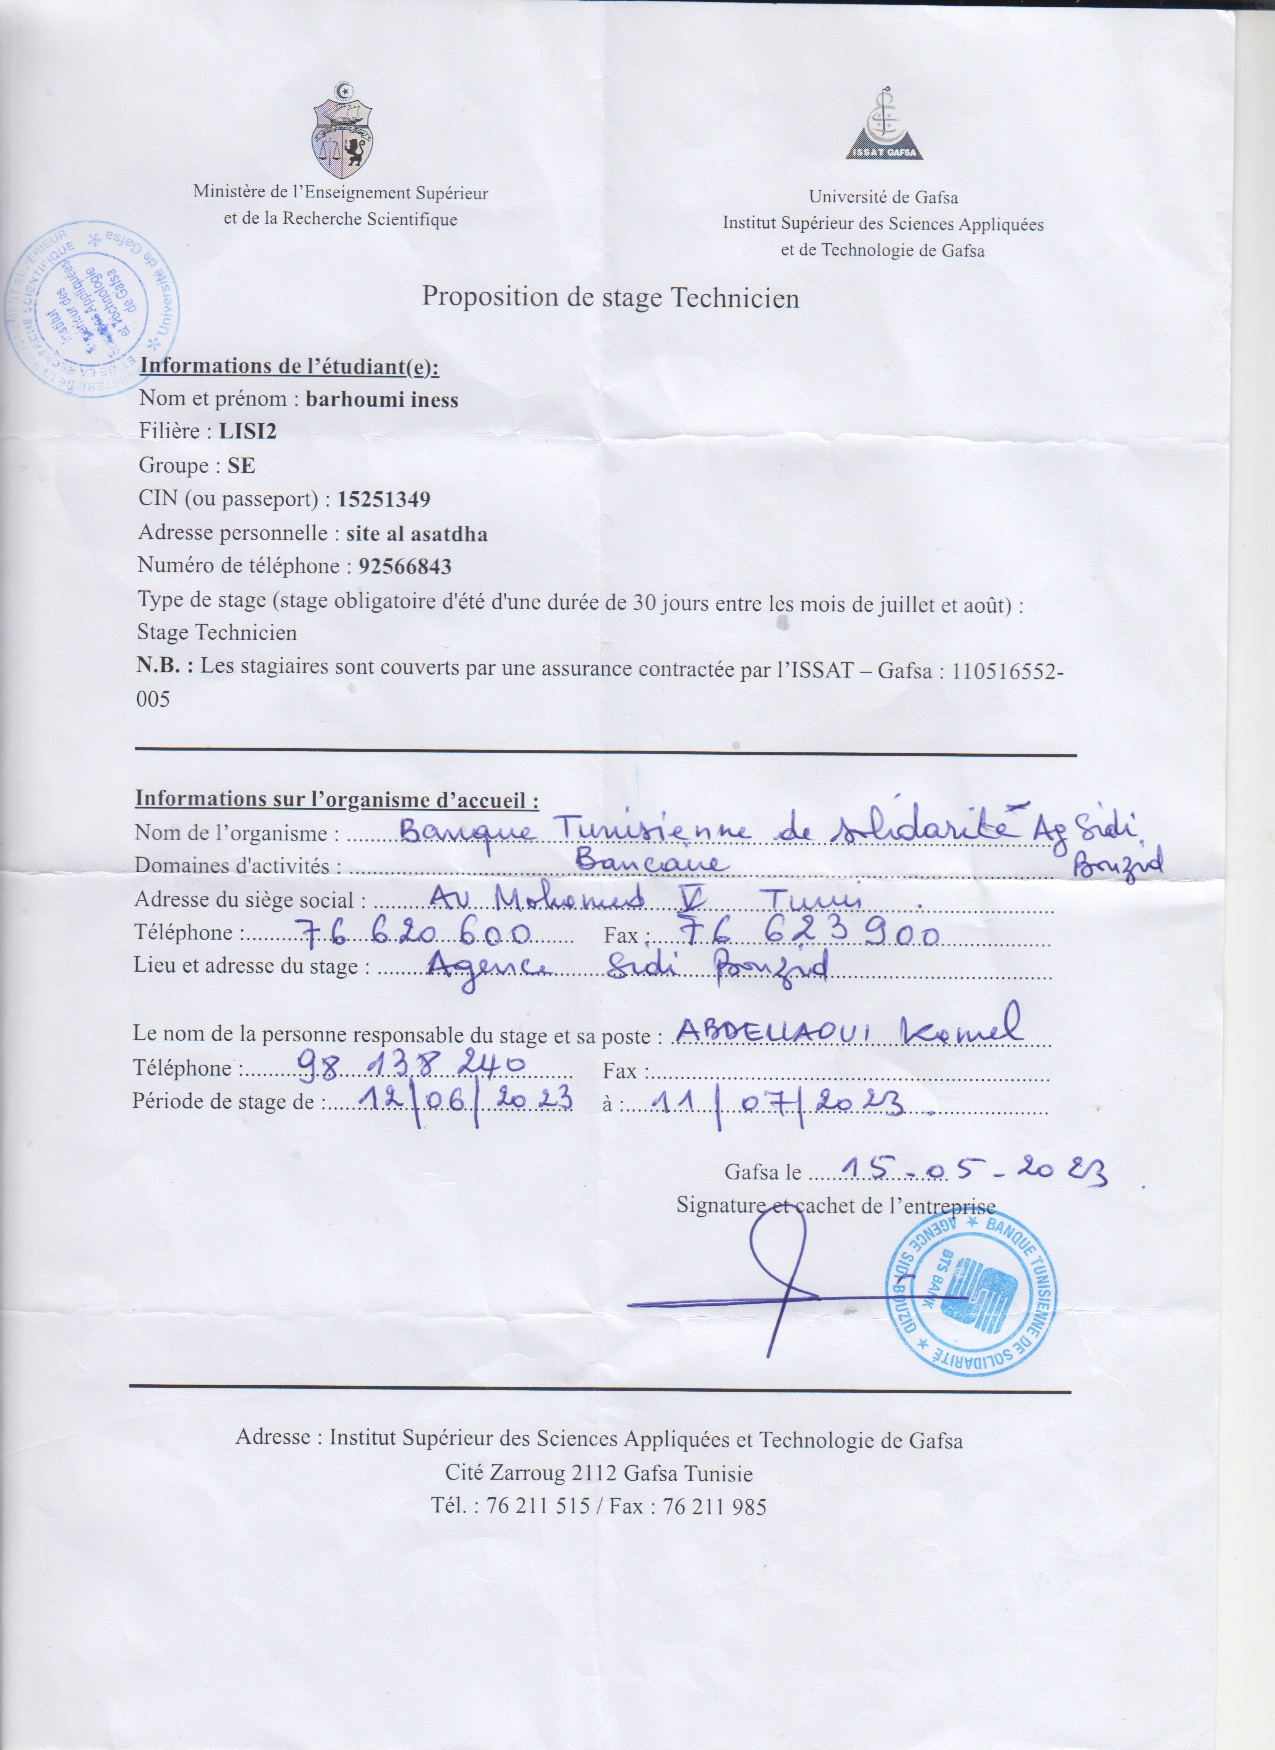 ISSAT GAFSA
Ministère de l'Enseignement Supérieur
et de la Recherche Scientifique
Université de Gafsa
Institut Supérieur des Sciences Appliquées
et de Technologie de Gafsa
Université de Gafsa
ET DE LA RECHERCHE SCIENTIFIQUE
Institut
Supérieur des
Sciences Appliquées
et Technologie
de Gafsa
Proposition de stage Technicien
Informations de l'étudiant(e):
Nom et prénom : barhoumi iness
Filière : LISI2
Groupe : SE
CIN (ou passeport) : 15251349
Adresse personnelle : site al asatdha
Numéro de téléphone : 92566843
Type de stage (stage obligatoire d'été d'une durée de 30 jours entre les mois de juillet et août) :
Stage Technicien
N.B. : Les stagiaires sont couverts par une assurance contractée par l'ISSAT – Gafsa : 110516552-
005
Informations sur l'organisme d'accueil :
Nom de l'organisme : Banque Tunisienne de solidarité Ag Sidi
Bouzid
Domaines d'activités : Bancaire
Adresse du siège social : AV Mohamed V Tunis
Téléphone : 76 620 600 Fax : 76 623 900
Lieu et adresse du stage : Agence Sidi Bouzid
Le nom de la personne responsable du stage et sa poste : ABDELLAOUI Kamel
Téléphone : 98 138 240 Fax :
Période de stage de : 12/06/2023 à : 11/07/2023.
Gafsa le 15-05-2023
Signature et cachet de l'entreprise
BANQUE TUNISIENNE DE SOLIDARITÉ ★ AGENCE SIDI BOUZID ★
BTS BANK
Adresse : Institut Supérieur des Sciences Appliquées et Technologie de Gafsa
Cité Zarroug 2112 Gafsa Tunisie
Tél. : 76 211 515 / Fax : 76 211 985